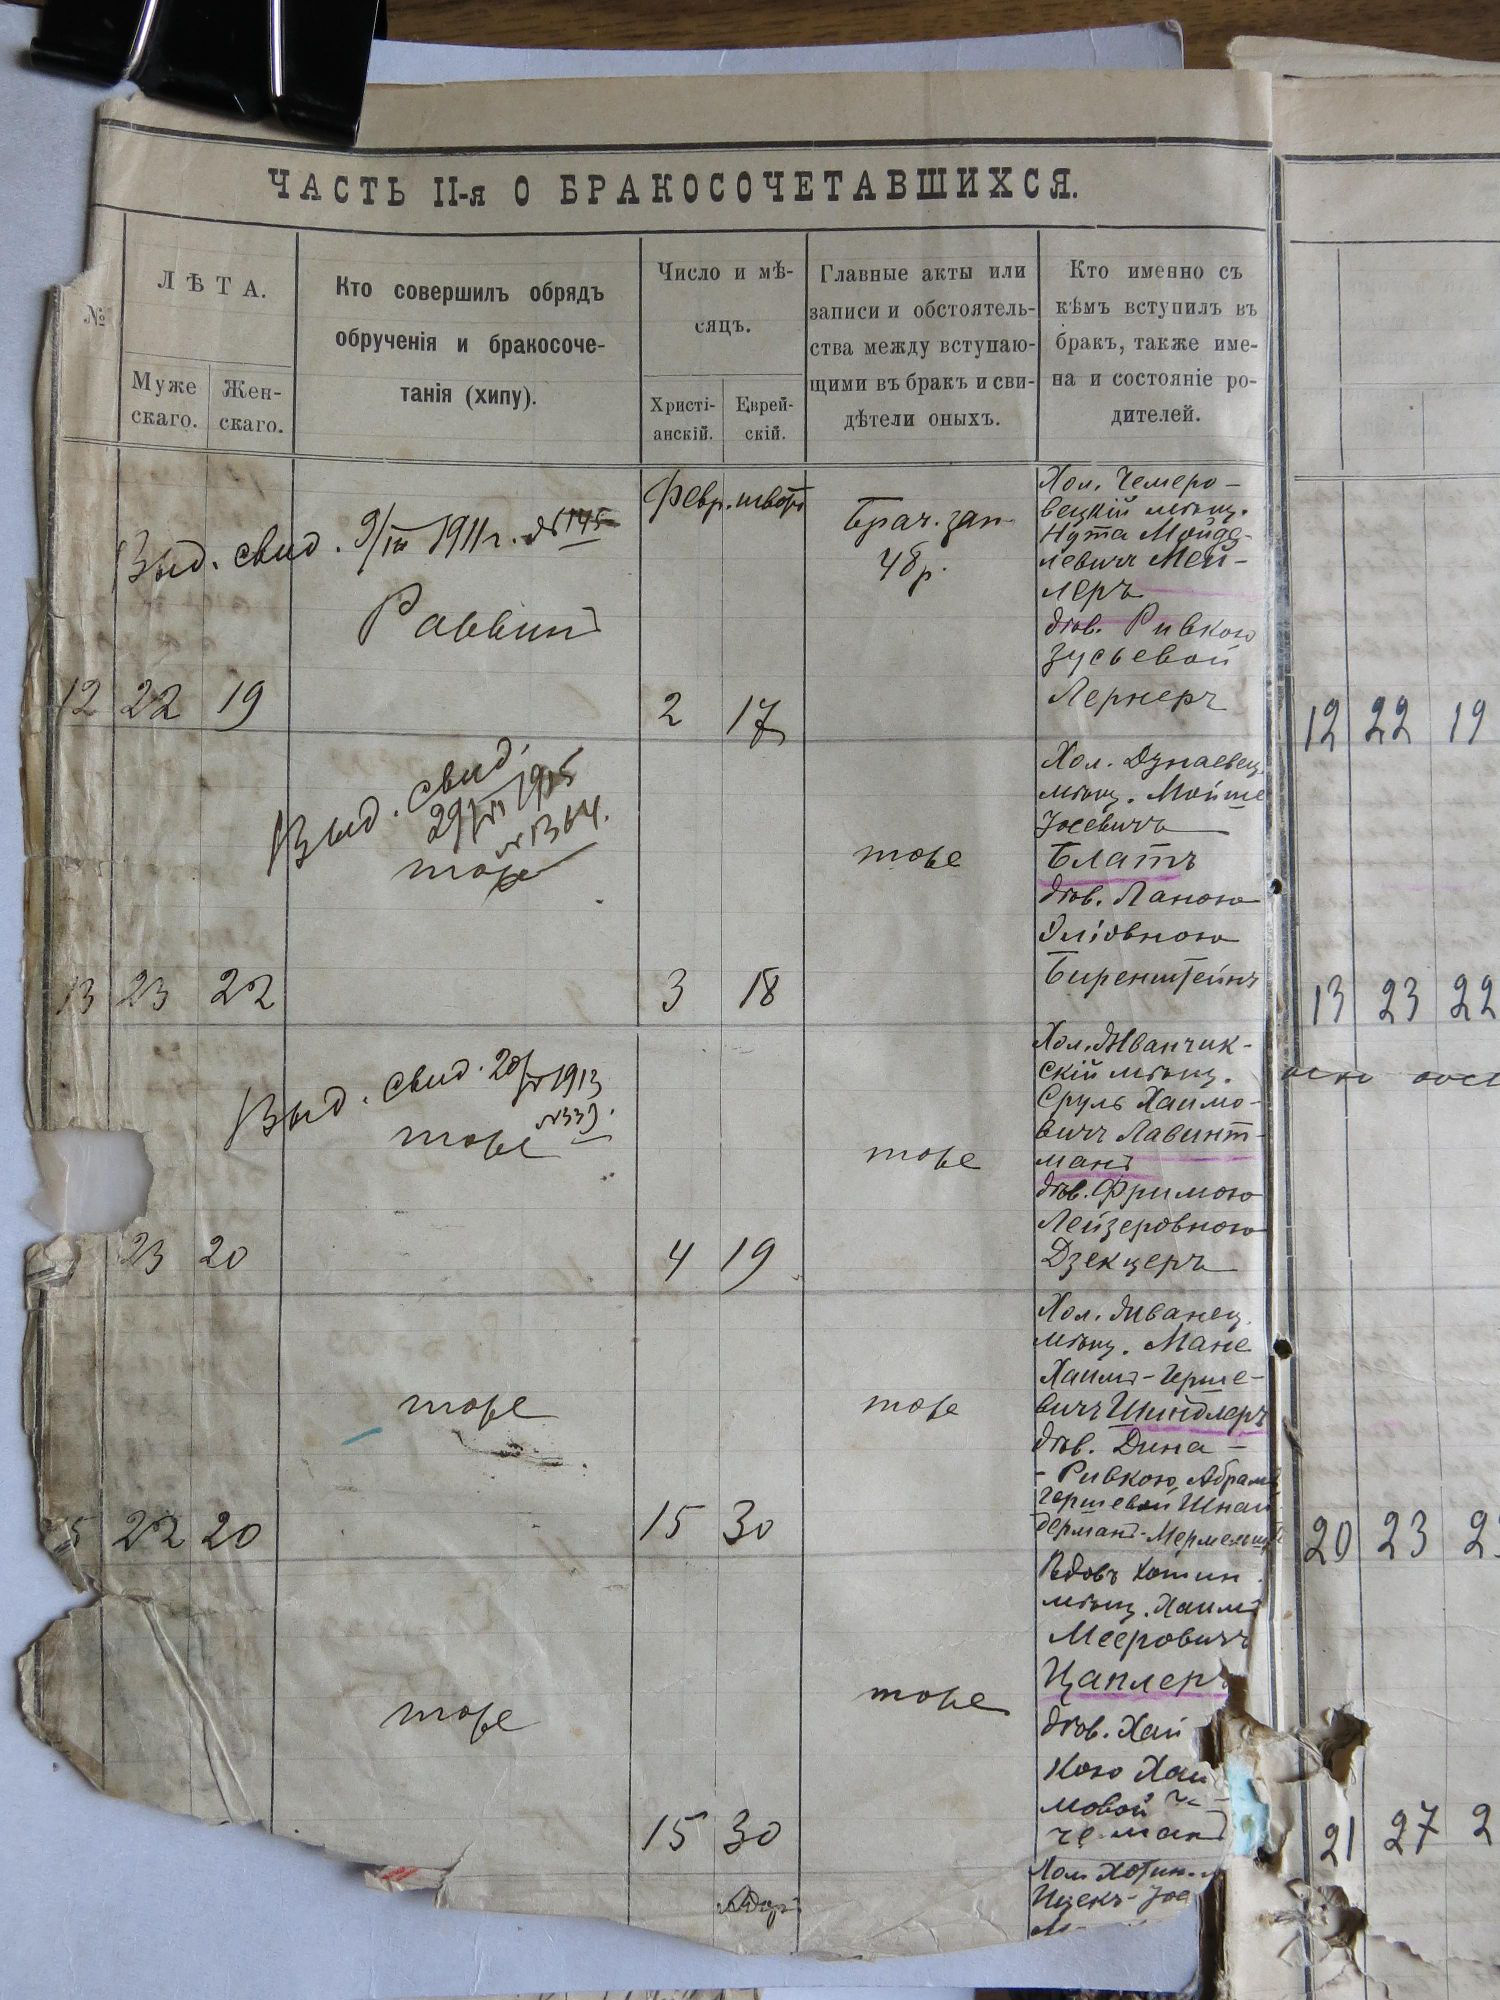 ЧАСТЬ II-я О БРАКОСОЧЕТАВШИХСЯ.
№
ЛѢТА.
Муже
скаго.
Жен-
скаго.
Кто совершилъ обрядъ
обрученія и бракосоче-
танія (хипу).
Число и мѣ-
сяцъ.
Христі-
анскій.
Еврей-
скій.
Главные акты или
записи и обстоятель-
ства между вступаю-
щими въ бракъ и сви-
дѣтели оныхъ.
Кто именно съ
кѣмъ вступилъ въ
бракъ, также име-
на и состояніе ро-
дителей.
12 22 19
Выд. свид. 9/III 1911 г. № 145
Раввинъ
Февр. шватъ
2 17
Брач. зап.
48 р.
Хол. Чемеро-
вецкій мѣщ.
Нута Мойде-
левичъ Мей-
леръ
дѣв. Ривкою
Зусьевой
Лернеръ
13 23 22
Выд. свид.
29/VI 1915
№ 1364.
тоже
3 18
тоже
Хол. Дунаевец.
мѣщ. Мойше
Іосевичъ
Блатъ
дѣв. Ланою
Эліовною
Биренштейнъ
23 20
Выд. свид. 20/ 1913
№ 339.
тоже
4 19
тоже
Хол. Жванчик-
скій мѣщ.
Сруль Хаимо-
вичъ Лавинт-
манъ
дѣв. Фримою
Лейзеровною
Дзекцеръ
5 22 20
тоже
15 30
тоже
Хол. Жванец.
мѣщ. Мане
Хаимъ-Герше-
вичъ Шиндлеръ
дѣв. Дина-
-Ривкою Абрамъ
Гершевой Шнай
дерманъ-
тоже
15 30
тоже
Вдовъ Хотин.
мѣщ. Хаимъ
Мееровичъ
Цаплеръ
дѣв. Хай
кою Хаи
мовой
манъ
Адаръ
Хол Хотин.
Ицекъ-Іос
12 22 19
13 23 22
20 23 2
21 27 2